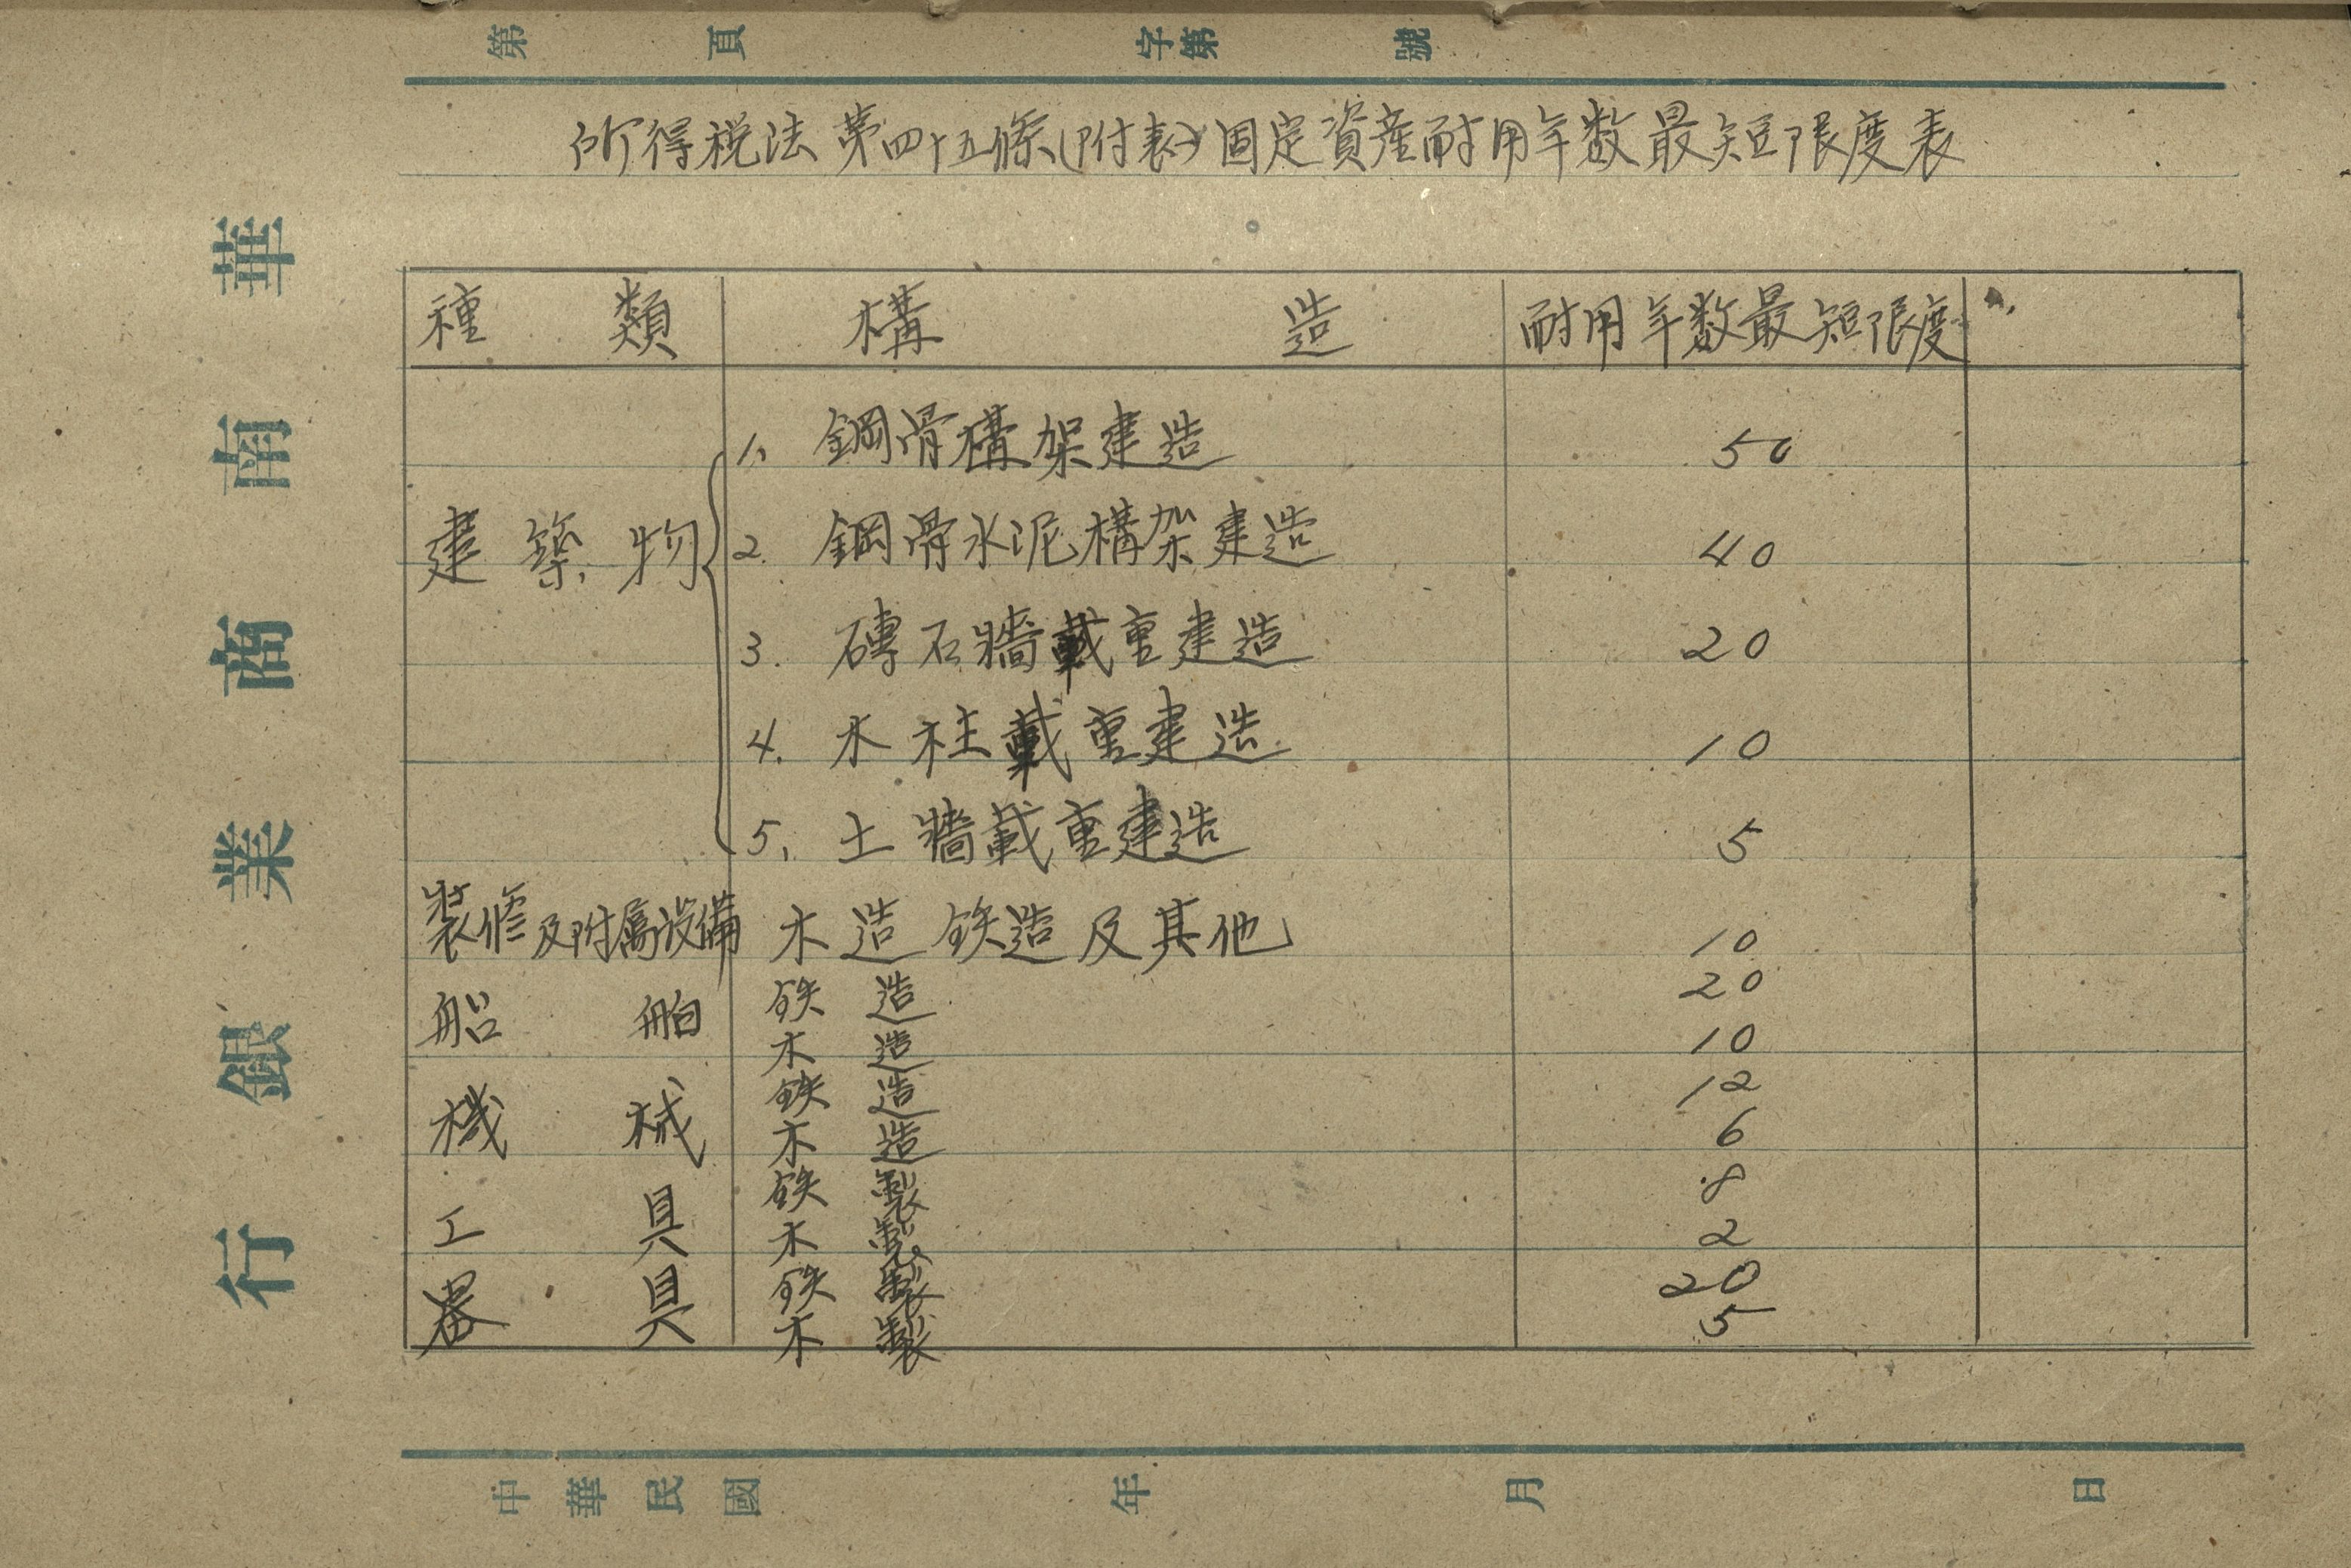 第 頁 字第 號
所得税法第四十五條(附表一)固定資産耐用年数最短限度表
種 類 構 造 耐用年数最短限度
1. 鋼骨構架建造 50
建築物 2. 鋼骨水泥構架建造 40
3. 磚石牆載重建造 20
4. 木柱載重建造 10
5. 土牆載重建造 5
装修及附属設備 木造鉄造及其他 10
船 舶 鉄 造 20
木 造 10
機 械 鉄 造 12
木 造 6
工 具 鉄 製 8
木 製 2
器 具 鉄 製 20
木 製 5
華南商業銀行
中華民國 年 月 日